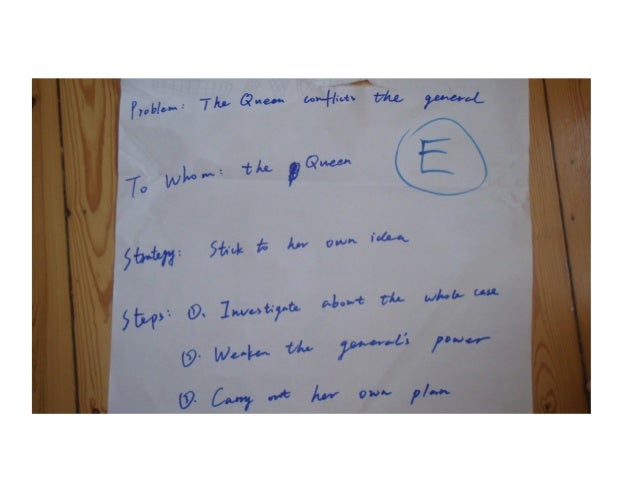 Problem: The Queen conflicts the general
E
To Whom: the Queen
Strategy: Stick to her own idea
Steps: ①. Investigate about the whole case
②. Weaken the general's power
③. Carry out her own plan